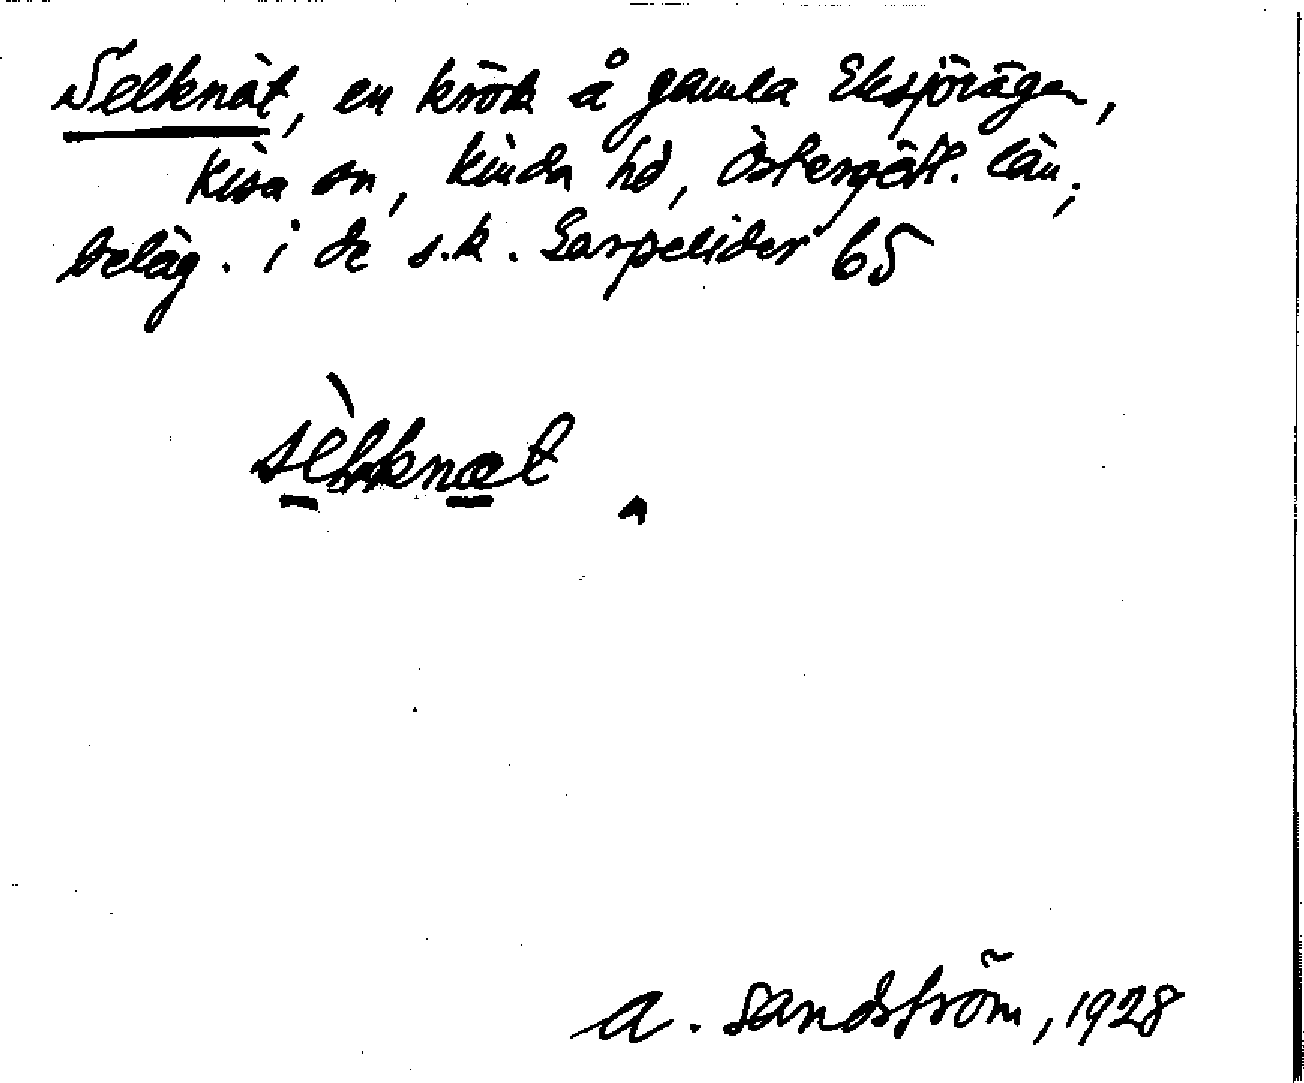 Selknät, en krök å gamla Eksjövägen,
Kisa sn, Kinda hd, Östergötl. län,
beläg. i de s.k. Sarpelider 65
sèlknæt
A. Sandström, 1928